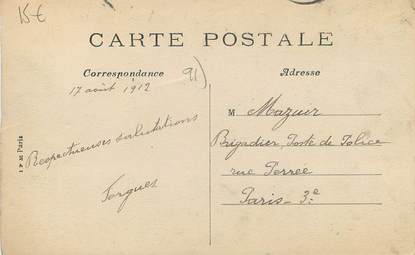 15€
CARTE POSTALE
Correspondance
91)
Adresse
17 août 1912
Respectueuses salutations
Forgues
I P M Paris
M Mazuir
Brigadier, Poste de Police
rue Perrée
Paris - 3e